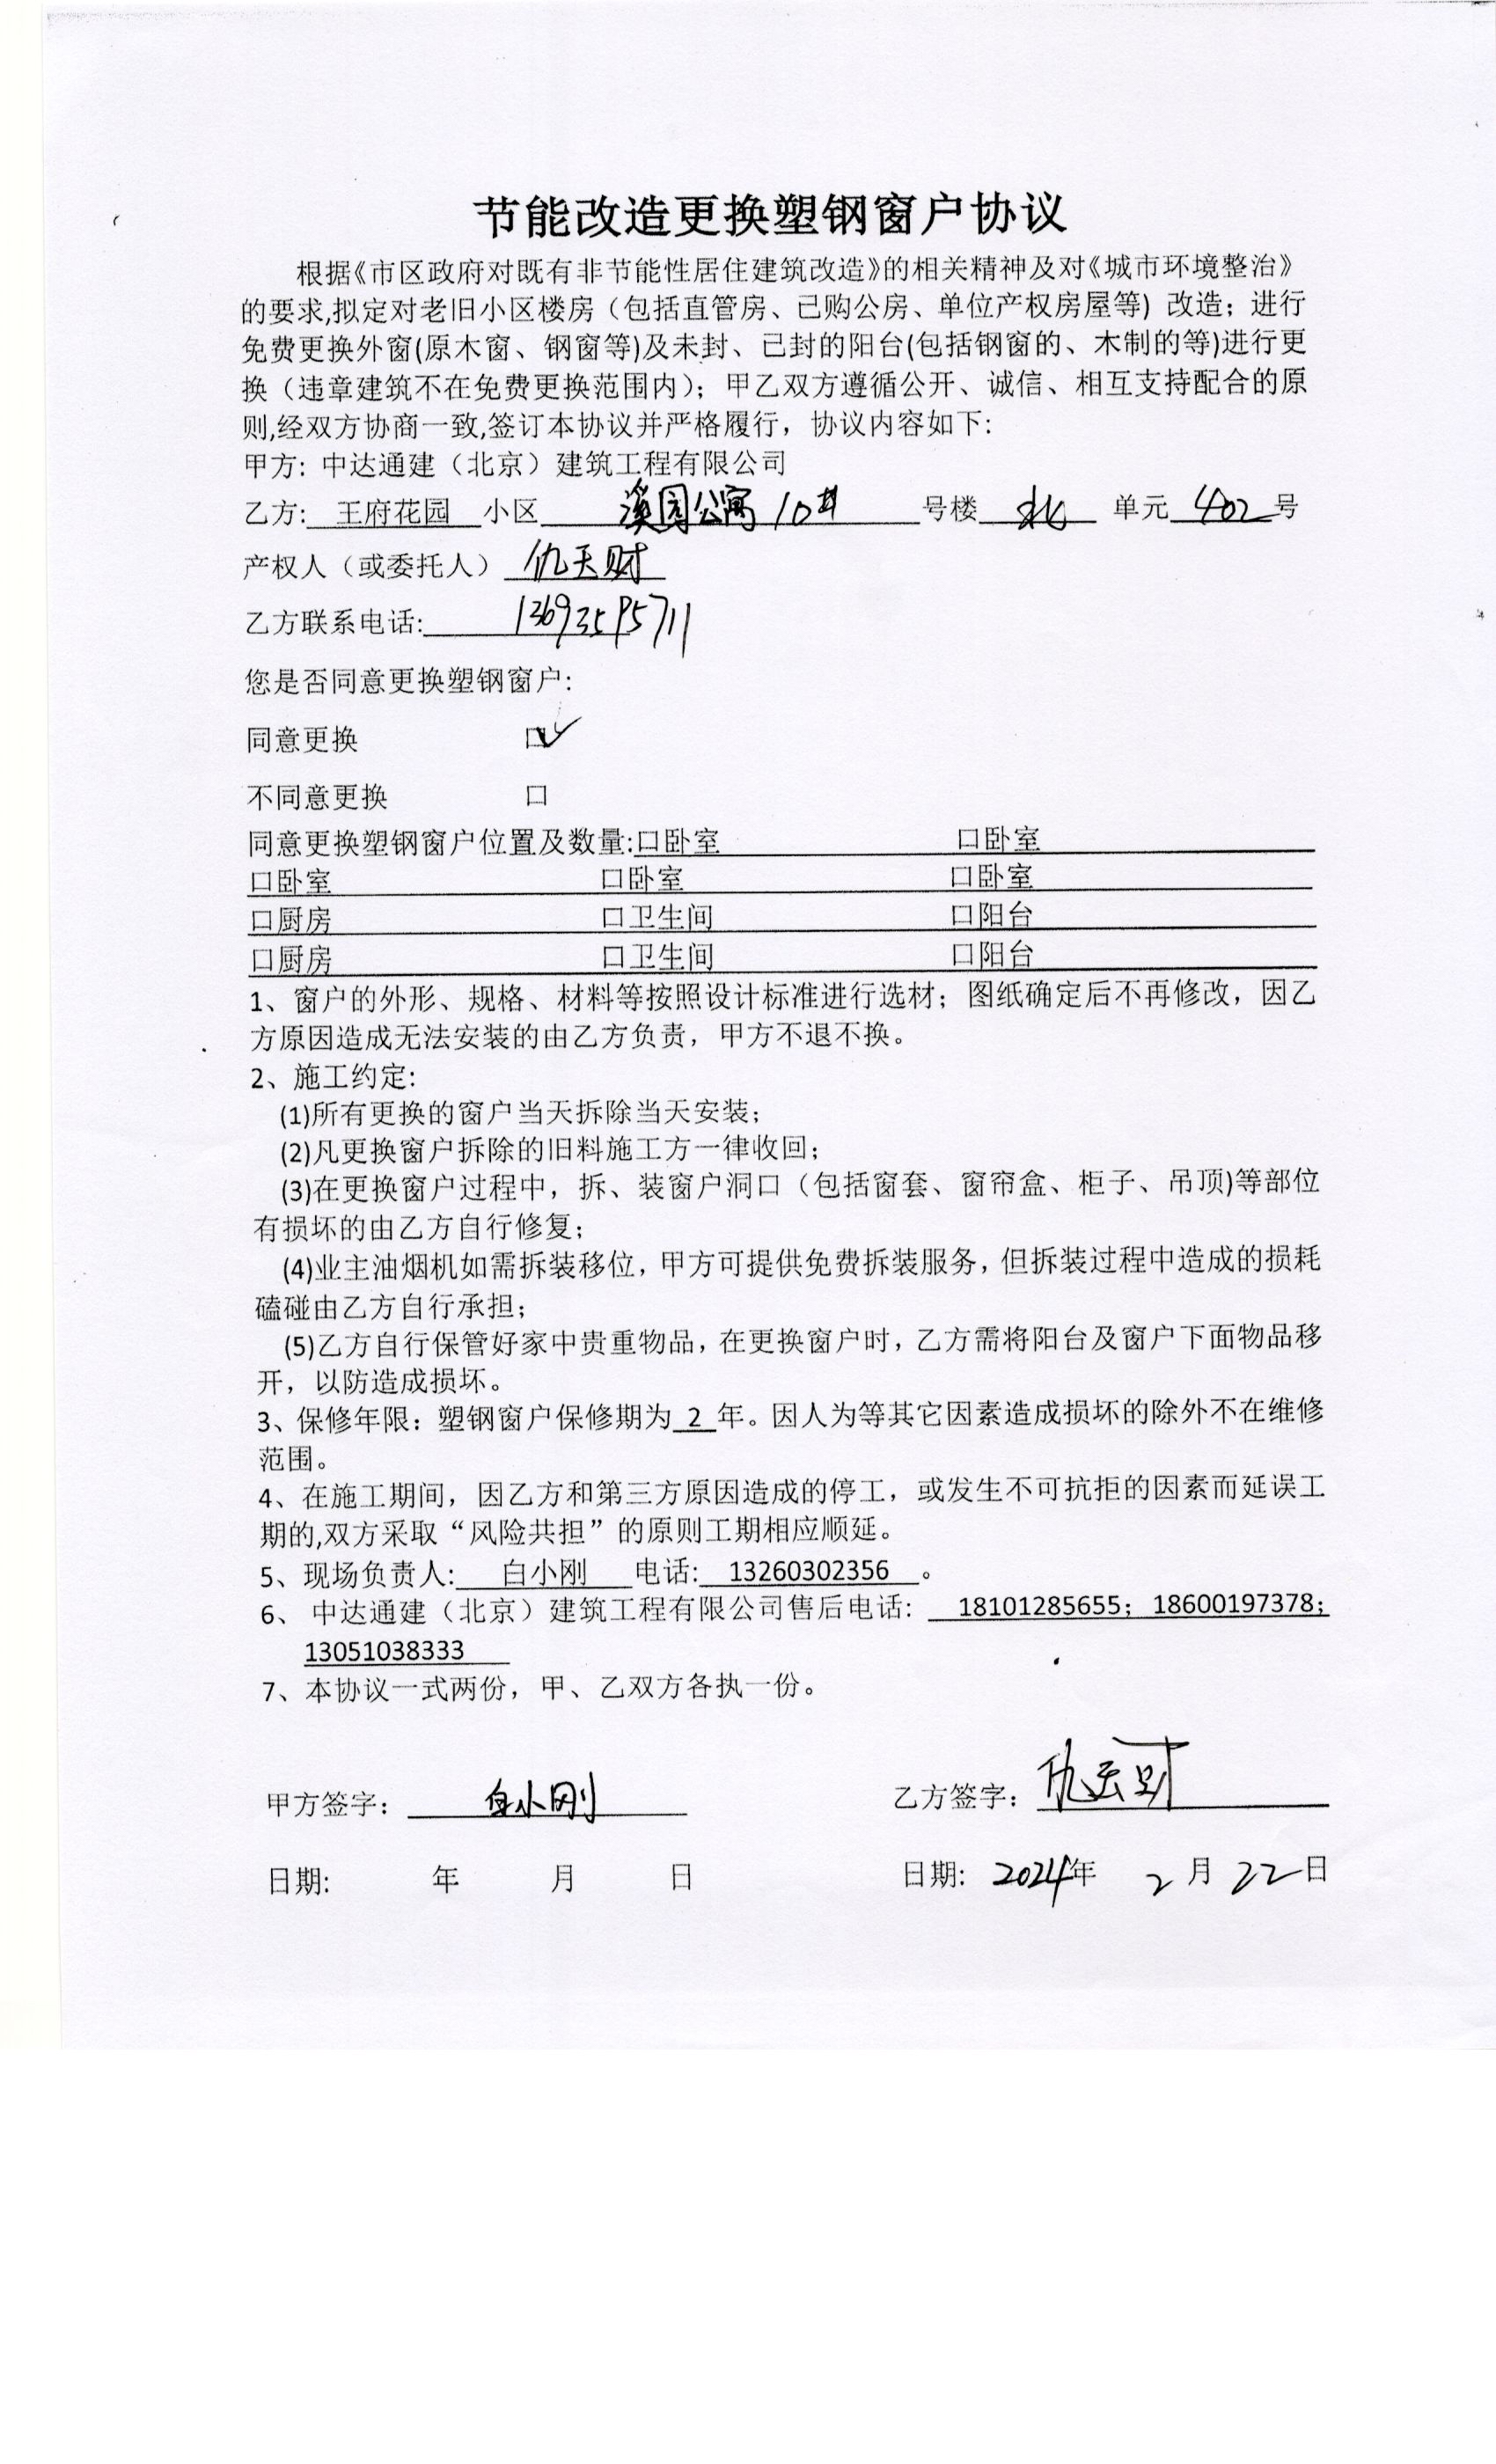 节能改造更换塑钢窗户协议
根据《市区政府对既有非节能性居住建筑改造》的相关精神及对《城市环境整治》
的要求,拟定对老旧小区楼房（包括直管房、已购公房、单位产权房屋等) 改造；进行
免费更换外窗(原木窗、钢窗等)及未封、已封的阳台(包括钢窗的、木制的等)进行更
换（违章建筑不在免费更换范围内）；甲乙双方遵循公开、诚信、相互支持配合的原
则,经双方协商一致,签订本协议并严格履行，协议内容如下:
甲方: 中达通建（北京）建筑工程有限公司
乙方: 王府花园 小区 溪园公寓10# 号楼 北 单元 402 号
产权人（或委托人） 仇天财
乙方联系电话: 13693595711
您是否同意更换塑钢窗户:
同意更换 口✓
不同意更换 口
同意更换塑钢窗户位置及数量:口卧室 口卧室
口卧室 口卧室 口卧室
口厨房 口卫生间 口阳台
口厨房 口卫生间 口阳台
1、窗户的外形、规格、材料等按照设计标准进行选材；图纸确定后不再修改，因乙
方原因造成无法安装的由乙方负责，甲方不退不换。
2、施工约定:
(1)所有更换的窗户当天拆除当天安装；
(2)凡更换窗户拆除的旧料施工方一律收回；
(3)在更换窗户过程中，拆、装窗户洞口（包括窗套、窗帘盒、柜子、吊顶)等部位
有损坏的由乙方自行修复；
(4)业主油烟机如需拆装移位，甲方可提供免费拆装服务，但拆装过程中造成的损耗
磕碰由乙方自行承担；
(5)乙方自行保管好家中贵重物品，在更换窗户时，乙方需将阳台及窗户下面物品移
开，以防造成损坏。
3、保修年限：塑钢窗户保修期为 2 年。因人为等其它因素造成损坏的除外不在维修
范围。
4、在施工期间，因乙方和第三方原因造成的停工，或发生不可抗拒的因素而延误工
期的,双方采取“风险共担”的原则工期相应顺延。
5、现场负责人: 白小刚 电话: 13260302356 。
6、 中达通建（北京）建筑工程有限公司售后电话: 18101285655；18600197378；
13051038333
7、本协议一式两份，甲、乙双方各执一份。
甲方签字： 白小刚 乙方签字： 仇天财
日期: 年 月 日 日期: 2024年 2 月 22 日